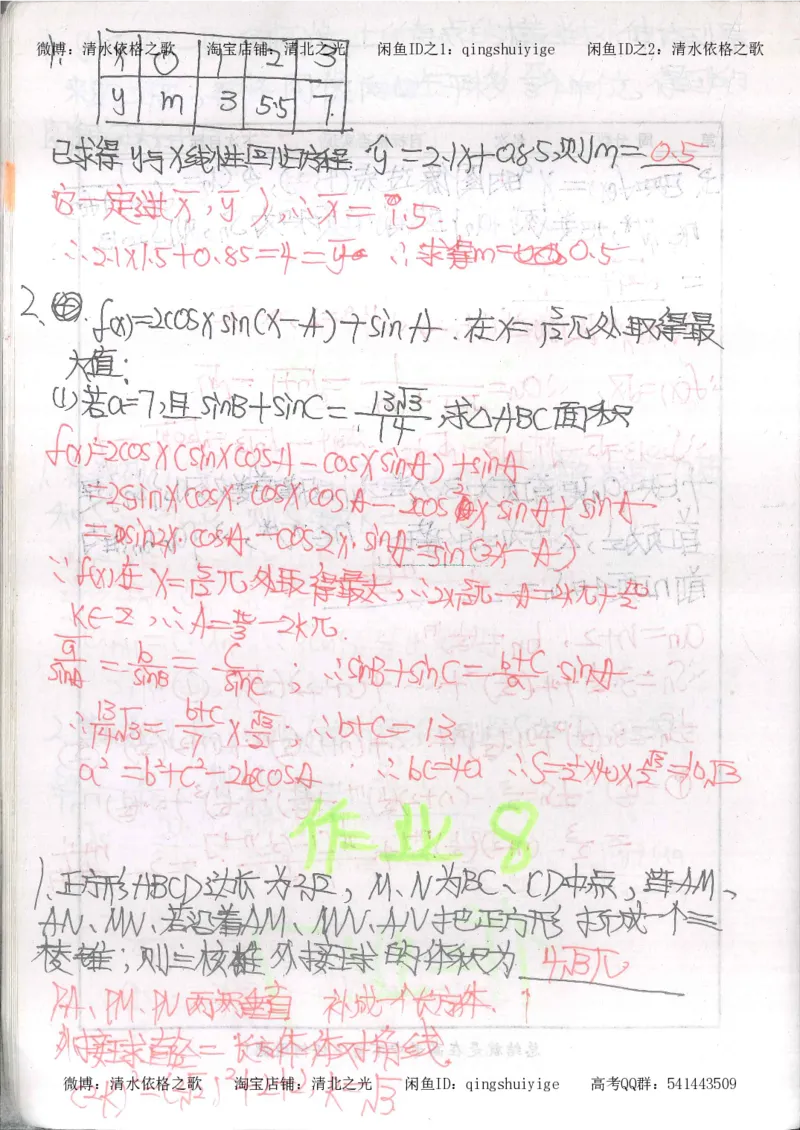 微博：清水依格之歌 淘宝店铺：清北之光 闲鱼ID之1：qingshuiyige 闲鱼ID之2：清水依格之歌
1. x 0 1 2 3
y m 3 5.5 7
已求得y与x线性回归方程 ŷ=2.1x+0.85,则m=0.5
它一定过(x̄,ȳ),∴x̄=1.5
∴2.1×1.5+0.85=4=ȳ ∴求得m=0.5
2、④. f(x)=2cosx sin(x-A)+sinA.在x=5/12π处取得最
大值;
(1)若a=7,且sinB+sinC=13√3/14,求△ABC面积
f(x)=2cosx(sinxcosA-cosxsinA)+sinA
=2sinxcosx·cosA-2cos²x sinA+sinA
=sin2x·cosA-cos2x·sinA=sin(2x-A)
∵f(x)在x=5/12π处取得最大,∴2×5/12π-A=2kπ+π/2
k∈Z,∴A=π/3-2kπ.
a/sinA=b/sinB=c/sinC ∴sinB+sinC=b+c/a·sinA
∴13/14√3=b+c/7×√3/2 ∴b+c=13
a²=b²+c²-2bccosA ∴bc=40 ∴S=1/2×40×√3/2=10√3
作业8
1、正方形ABCD边长为2√2,M、N为BC、CD中点,连AM、
AN、MN、若沿着AM、MN、AN把正方形折成一个三
棱锥;则三棱锥外接球的体积为 4√3π
BA、BM、BN两两垂直 补成一个长方体.
外接球直径=长方体体对角线.
微博：清水依格之歌 淘宝店铺：清北之光 闲鱼ID：qingshuiyige 高考QQ群：541443509